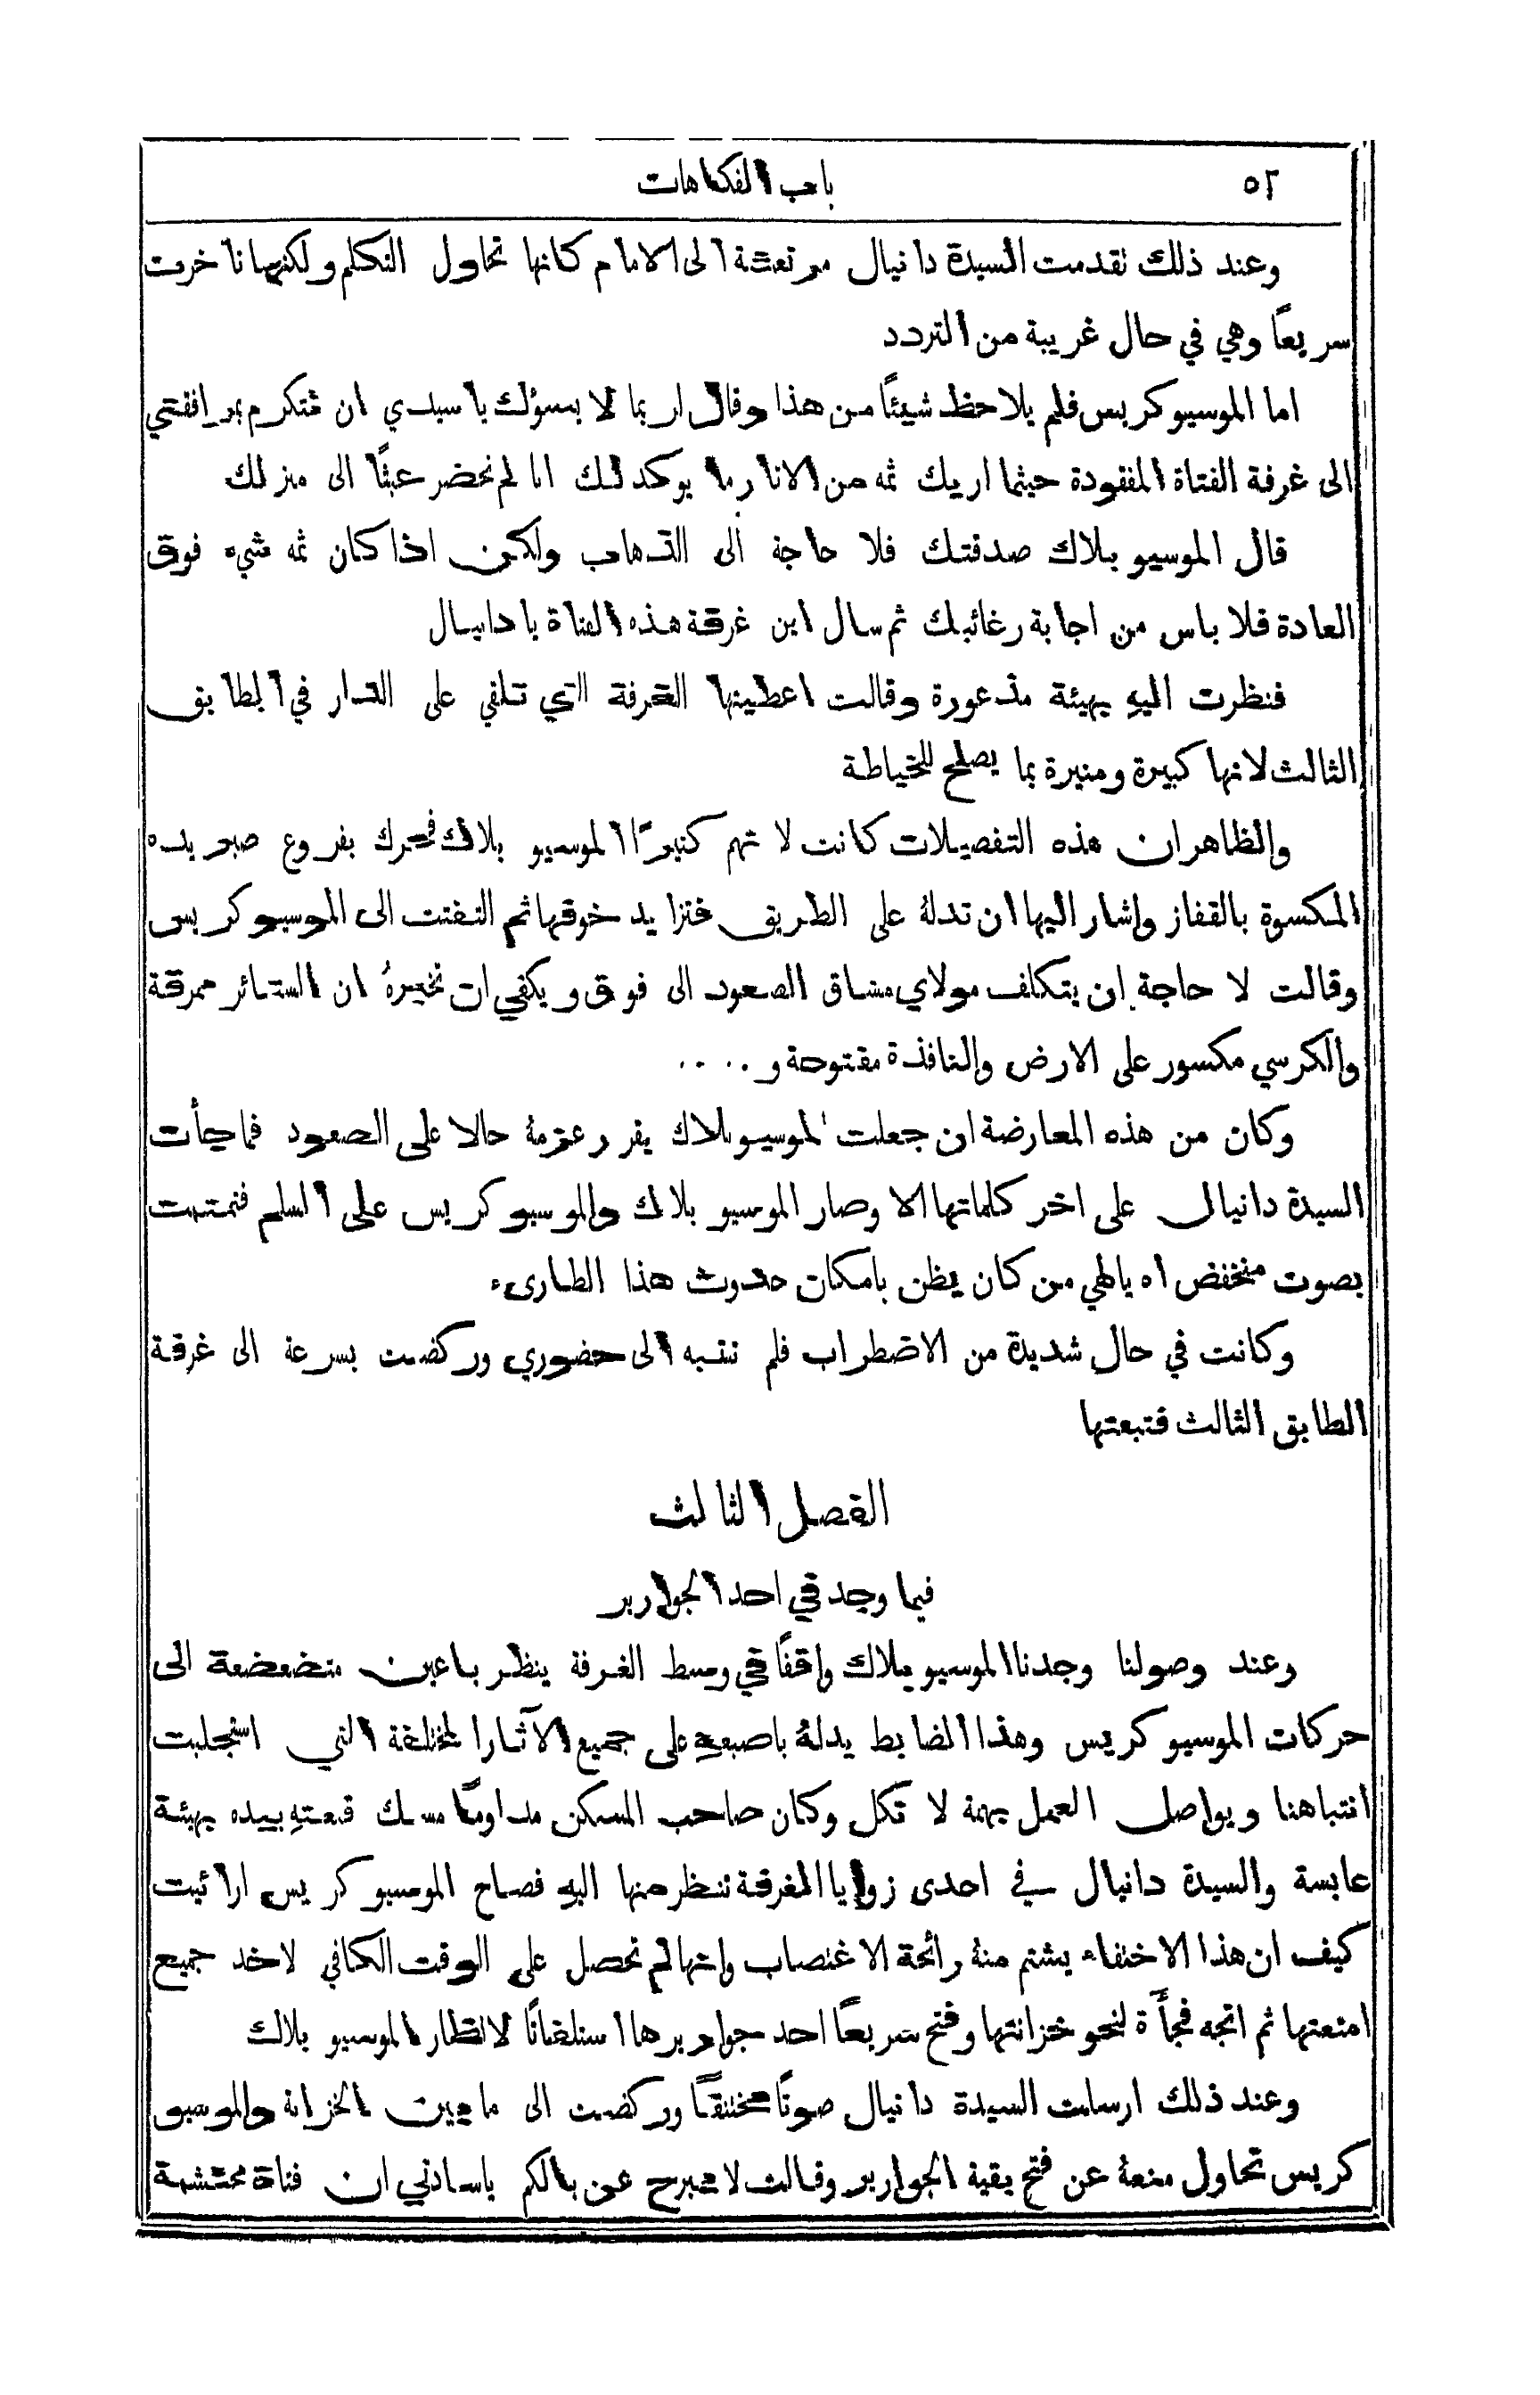 ٥٢
باب الفكاهات
وعند ذلك تقدمت السيدة دانيال مرتعشة الى الامام كانها تحاول التكلم ولكنها تاخرت
سريعًا وهي في حال غريبة من التردد
اما الموسيو كريس فلم يلاحظ شيئًا من هذا وقال ربما لا يسؤك يا سيدي ان تتكرم بمرافقتي
الى غرفة الفتاة المفقودة حيثما اريك ثمه من الاثار ما يوكد لك انا لم نحضر عبثًا الى منزلك
قال الموسيو بلاك صدقتك فلا حاجة الى الذهاب ولكن اذا كان ثمه شيء فوق
العادة فلا باس من اجابة رغائبك ثم سال اين غرفة هذه الفتاة يا دانيال
فنظرت اليهِ بهيئة مذعورة وقالت اعطيتها الغرفة التي تلقي على الدار في الطابق
الثالث لانها كبيرة ومنيرة بما يصلح للخياطة
والظاهر ان هذه التفصيلات كانت لا تهم كثيرًا الموسيو بلاك فحرك بفروغ صبر يده
المكسوة بالقفاز واشار اليها ان تدلهُ على الطريق فتزايد خوفها ثم التفتت الى الموسيو كريس
وقالت لا حاجة ان يتكلف مولاي مشاق الصعود الى فوق ويكفي ان نخبرهُ ان الستائر ممزقة
والكرسي مكسور على الارض والنافذة مفتوحة و . . . .
وكان من هذه المعارضة ان جعلت الموسيو بلاك يقرر عزمهُ حالا على الصعود فما جأت
السيدة دانيال على اخر كلماتها الا وصار الموسيو بلاك والموسيو كريس على السلم فتمتمت
بصوت منخفض اه يا الهي من كان يظن بامكان حدوث هذا الطارىء
وكانت في حال شديدة من الاضطراب فلم تنتبه الى حضوري وركضت بسرعة الى غرفة
الطابق الثالث فتبعتها
الفصل الثالث
فيما وجد في احد الجوارير
وعند وصولنا وجدنا الموسيو بلاك واقفًا في وسط الغرفة ينظر باعين متضعضعة الى
حركات الموسيو كريس وهذا الضابط يدلهُ باصبعهِ على جميع الآثار المختلفة التي استجلبت
انتباهنا ويواصل العمل بهمة لا تكل وكان صاحب المسكن مداومًا مسك قبعتهِ بيده بهيئة
عابسة والسيدة دانيال في احدى زوايا الغرفة تنظر منها اليه فصاح الموسيو كريس ارائيت
كيف ان هذا الاختفاء يشتم منهُ رائحة الاغتصاب وانها لم تحصل على الوقت الكافي لاخذ جميع
امتعتها ثم اتجه فجأة لنحو خزانتها وفتح سريعًا احد جواريرها استلفاتًا لانظار الموسيو بلاك
وعند ذلك ارسلت السيدة دانيال صوتًا مختنقًا وركضت الى ما بين الخزانة والموسيو
كريس تحاول منعهُ عن فتح بقية الجوارير وقالت لا يبرح عن بالكم ياسادتي ان فتاة محتشمة